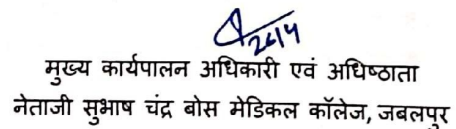 26/4
मुख्य कार्यपालन अधिकारी एवं अधिष्ठाता
नेताजी सुभाष चंद्र बोस मेडिकल कॉलेज, जबलपुर